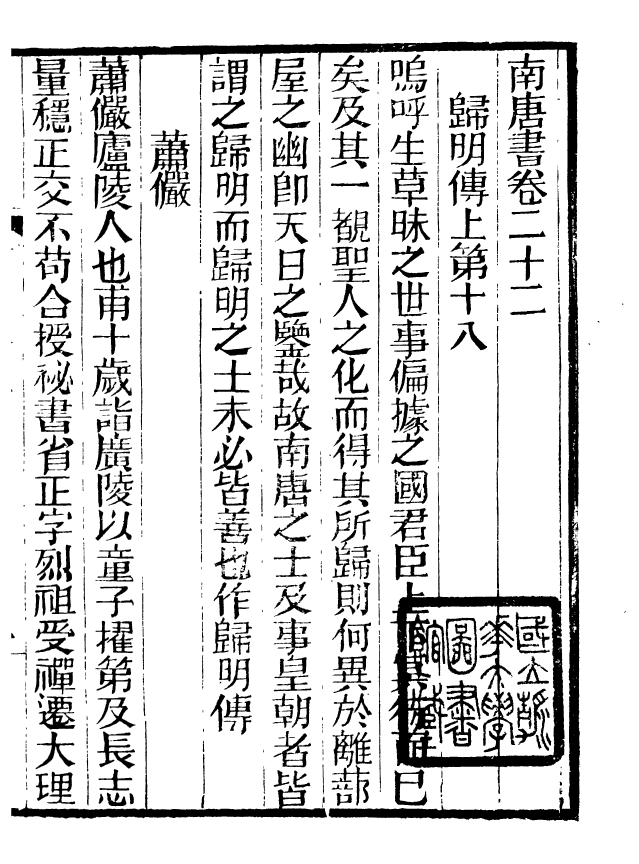 南唐書卷二十二
歸明傳上第十八
嗚呼生草昧之世事偏據之國君臣上而已
矣及其一覩聖人之化而得其所歸則何異於離蔀
屋之幽卽天日之鑒哉故南唐之士及事皇朝者皆
謂之歸明而歸明之士未必皆善也作歸明傳
蕭儼
蕭儼廬陵人也甫十歲詣廣陵以童子擢第及長志
量穩正交不苟合授祕書省正字烈祖受禪遷大理
國立
大學
圖書
館藏